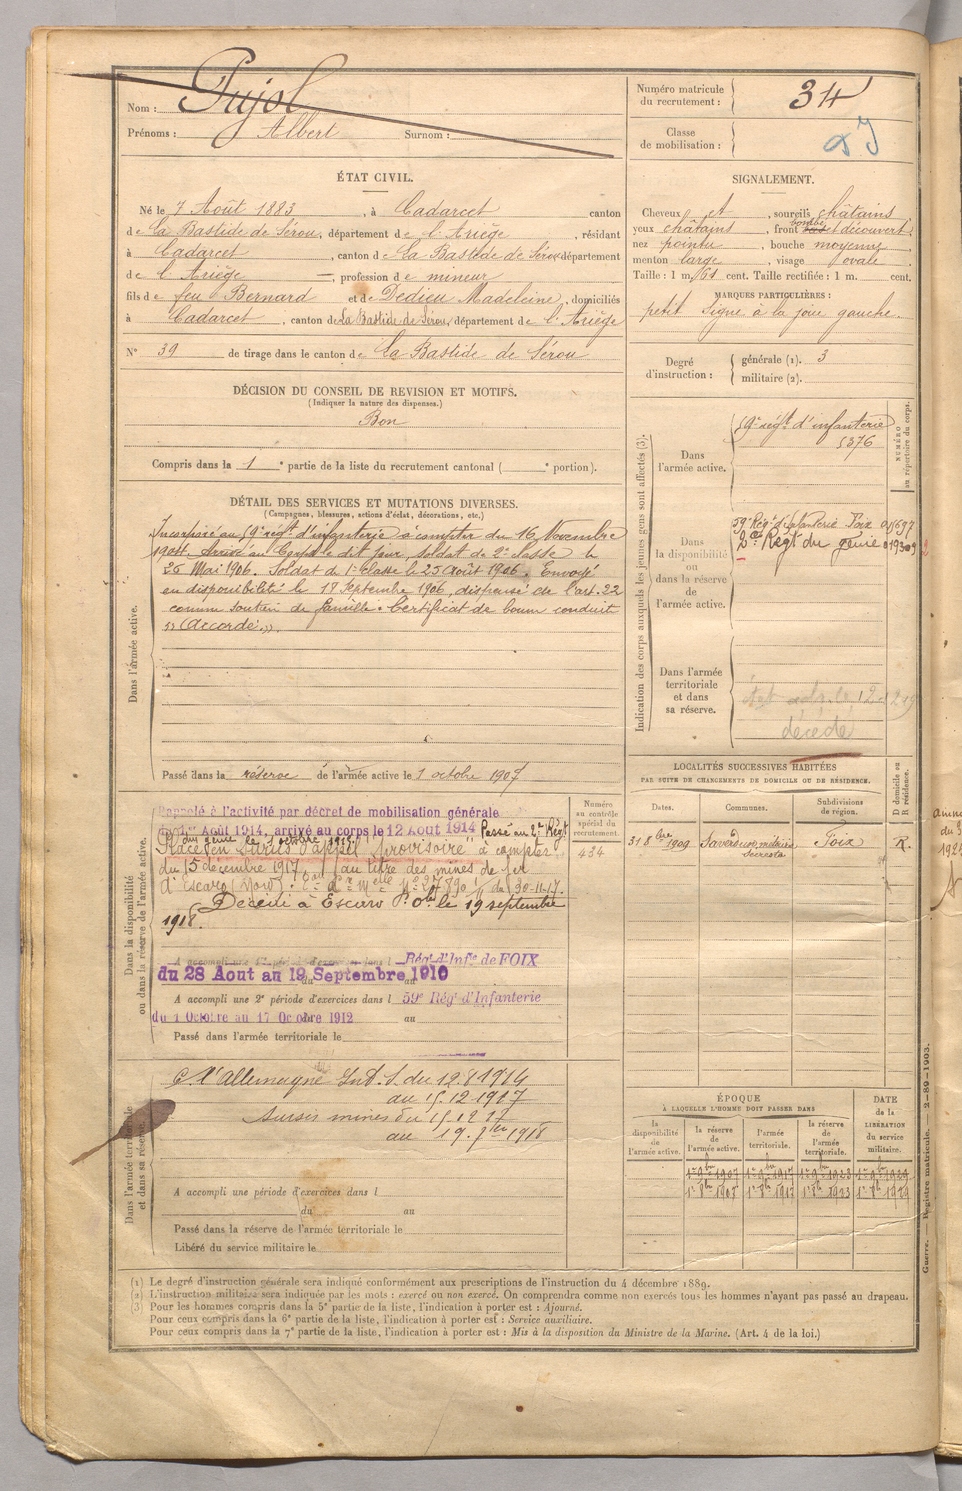 Nom : Pujol
Prénoms : Albert Surnom :
Numéro matricule du recrutement : 34
Classe de mobilisation :
ÉTAT CIVIL.
Né le 7 Août 1883, à Cadarcet canton
de La Bastide de Sérou, département de l'Ariège, résidant
à Cadarcet, canton de La Bastide de Sérou, département
de l'Ariège, profession de mineur
fils de feu Bernard et de Dedieu Madeleine, domiciliés
à Cadarcet, canton de La Bastide de Sérou, département de l'Ariège
N° 39 de tirage dans le canton de La Bastide de Sérou
SIGNALEMENT.
Cheveux et, sourcils châtains
yeux châtains, front bombé et découvert
nez pointu, bouche moyenne
menton large, visage ovale
Taille : 1 m. 61 cent. Taille rectifiée : 1 m. cent.
MARQUES PARTICULIÈRES :
petit signe à la joue gauche.
Degré d'instruction : générale (1). 3
militaire (2).
DÉCISION DU CONSEIL DE REVISION ET MOTIFS.
(Indiquer la nature des dispenses.)
Bon
Compris dans la 1e partie de la liste du recrutement cantonal ( e portion).
DÉTAIL DES SERVICES ET MUTATIONS DIVERSES.
(Campagnes, blessures, actions d'éclat, décorations, etc.)
Dans l'armée active.
Incorporé au 59e régt d'infanterie à compter du 16 Novembre
1904. Arrivé au Corps le dit jour, soldat de 2e classe le
26 Mai 1906. Soldat de 1e classe le 25 Août 1906. Envoyé
en disponibilité le 17 Septembre 1906, dispensé de l'art. 22
comme soutien de famille. Certificat de bonne conduite
"Accordé".
Passé dans la réserve de l'armée active le 1 octobre 1907
Indication des corps auxquels les jeunes gens sont affectés (3).
NUMÉRO au répertoire du corps.
Dans l'armée active.
59e régt d'infanterie
5376
Dans la disponibilité ou dans la réserve de l'armée active.
59e Régt d'Infanterie Foix
2e Régt du génie
Dans l'armée territoriale et dans sa réserve.
décédé
LOCALITÉS SUCCESSIVES HABITÉES
PAR SUITE DE CHANGEMENTS DE DOMICILE OU DE RÉSIDENCE.
Dates. Communes. Subdivisions de région. D domicile ou R résidence.
31 8bre 1909 Foix R.
Dans la disponibilité ou dans la réserve de l'armée active.
Numéro au contrôle spécial du recrutement
434
Rappelé à l'activité par décret de mobilisation générale
du 1er Août 1914, arrivé au corps le 12 Août 1914 Passé au 2e Régt
du génie le
sursis d'appel provisoire à compter
du 15 décembre 1917, au titre des mines de fer
d'Escaro du 30-11-17.
Décédé à Escaro P. Oles le 19 septembre
1918.
A accompli une 1e période d'exercices dans l Régt d'Infie de FOIX
du 28 Aout au 19 Septembre 1910
A accompli une 2e période d'exercices dans l 59e Régt d'Infanterie
du 1 Octobre au 17 Octobre 1912 au
Passé dans l'armée territoriale le
Dans l'armée territoriale et dans sa réserve.
C. l'Allemagne Int. S. du 12.8.1914
au 15.12.1917
Sursis mines du 15 12 17
au 19. 7bre 1918
A accompli une période d'exercices dans l
du au
Passé dans la réserve de l'armée territoriale le
Libéré du service militaire le
ÉPOQUE
À LAQUELLE L'HOMME DOIT PASSER DANS
DATE de la LIBÉRATION du service militaire.
la disponibilité de l'armée active. la réserve de l'armée active. l'armée territoriale. la réserve de l'armée territoriale.
1er 9bre 1907 1er 9bre 1917 1er 9bre 1923 1er 9bre 1929
1er 8bre 1907 1er 8bre 1917 1er 8bre 1923 1er 8bre 1929
(1) Le degré d'instruction générale sera indiqué conformément aux prescriptions de l'instruction du 4 décembre 1889.
(2) L'instruction militaire sera indiquée par les mots : exercé ou non exercé. On comprendra comme non exercés tous les hommes n'ayant pas passé au drapeau.
(3) Pour les hommes compris dans la 5e partie de la liste, l'indication à porter est : Ajourné.
Pour ceux compris dans la 6e partie de la liste, l'indication à porter est : Service auxiliaire.
Pour ceux compris dans la 7e partie de la liste, l'indication à porter est : Mis à la disposition du Ministre de la Marine. (Art. 4 de la loi.)
Guerre. — Registre matricule. — 2-89-1903.